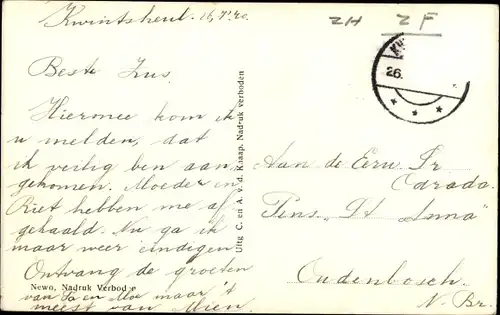 Kwintsheul. 16.7.40.
ZH ZF
Beste Zus.
Hiermee kom ik
u melden, dat
ik veilig ben aan-
gekomen. Moeder en
Riet hebben me af-
gehaald. Nu ga ik
maar weer eindigen
Ontvang de groeten
van Pa en Moe maar 't
meest van Mien.
Newo, Nadruk Verbod e
Uitg C. en A. v. d. Knaap, Nadruk verboden
26.
Aan de Eerw. Zr.
Odrada.
Pens. St „Anna"
Oudenbosch.
N. Br.